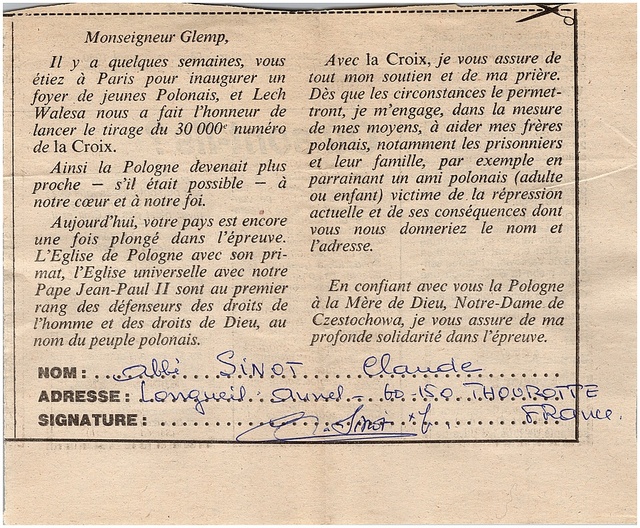 Monseigneur Glemp,
Il y a quelques semaines, vous
étiez à Paris pour inaugurer un
foyer de jeunes Polonais, et Lech
Walesa nous a fait l'honneur de
lancer le tirage du 30 000e numéro
de la Croix.
Ainsi la Pologne devenait plus
proche — s'il était possible — à
notre cœur et à notre foi.
Aujourd'hui, votre pays est encore
une fois plongé dans l'épreuve.
L'Eglise de Pologne avec son pri-
mat, l'Eglise universelle avec notre
Pape Jean-Paul II sont au premier
rang des défenseurs des droits de
l'homme et des droits de Dieu, au
nom du peuple polonais.
Avec la Croix, je vous assure de
tout mon soutien et de ma prière.
Dès que les circonstances le permet-
tront, je m'engage, dans la mesure
de mes moyens, à aider mes frères
polonais, notamment les prisonniers
et leur famille, par exemple en
parrainant un ami polonais (adulte
ou enfant) victime de la répression
actuelle et de ses conséquences dont
vous nous donneriez le nom et
l'adresse.
En confiant avec vous la Pologne
à la Mère de Dieu, Notre-Dame de
Czestochowa, je vous assure de ma
profonde solidarité dans l'épreuve.
NOM: abbé SINOT Claude
ADRESSE: Longueil-Annel - 60-150 THOUROTTE
FRance.
SIGNATURE: C. Sinot